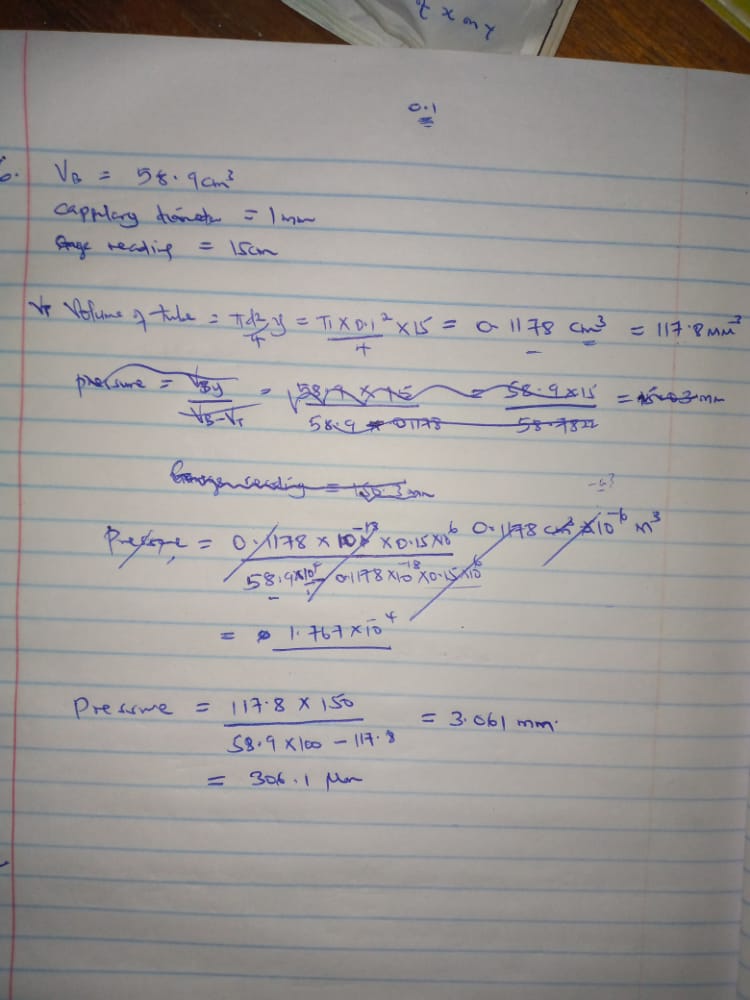 t x m y
0.1
6. V_B = 58.9cm³
cappilary = 1mm
reading = 15cm
V_T Volume of tube = πd²/4 y = π×0.1²×15/4 = 0.1178 cm³ = 117.8mm³
pressure = V_B y/V_B-V_T = 58.9×15/58.9 0.1178 = 58.9×15/58.7822 = mm
reading = mm
Pressure = 0.1178×10⁻¹³×0.15×10⁶ 0.1178 cm³ ×10⁻⁶ m³
58.9×10 - 0.1178×10⁻¹⁸×0.15×10⁶
= 1.767×10⁴
Pressure = 117.8 × 150/58.9×100 - 117.8 = 3.061 mm.
= 306.1 μm